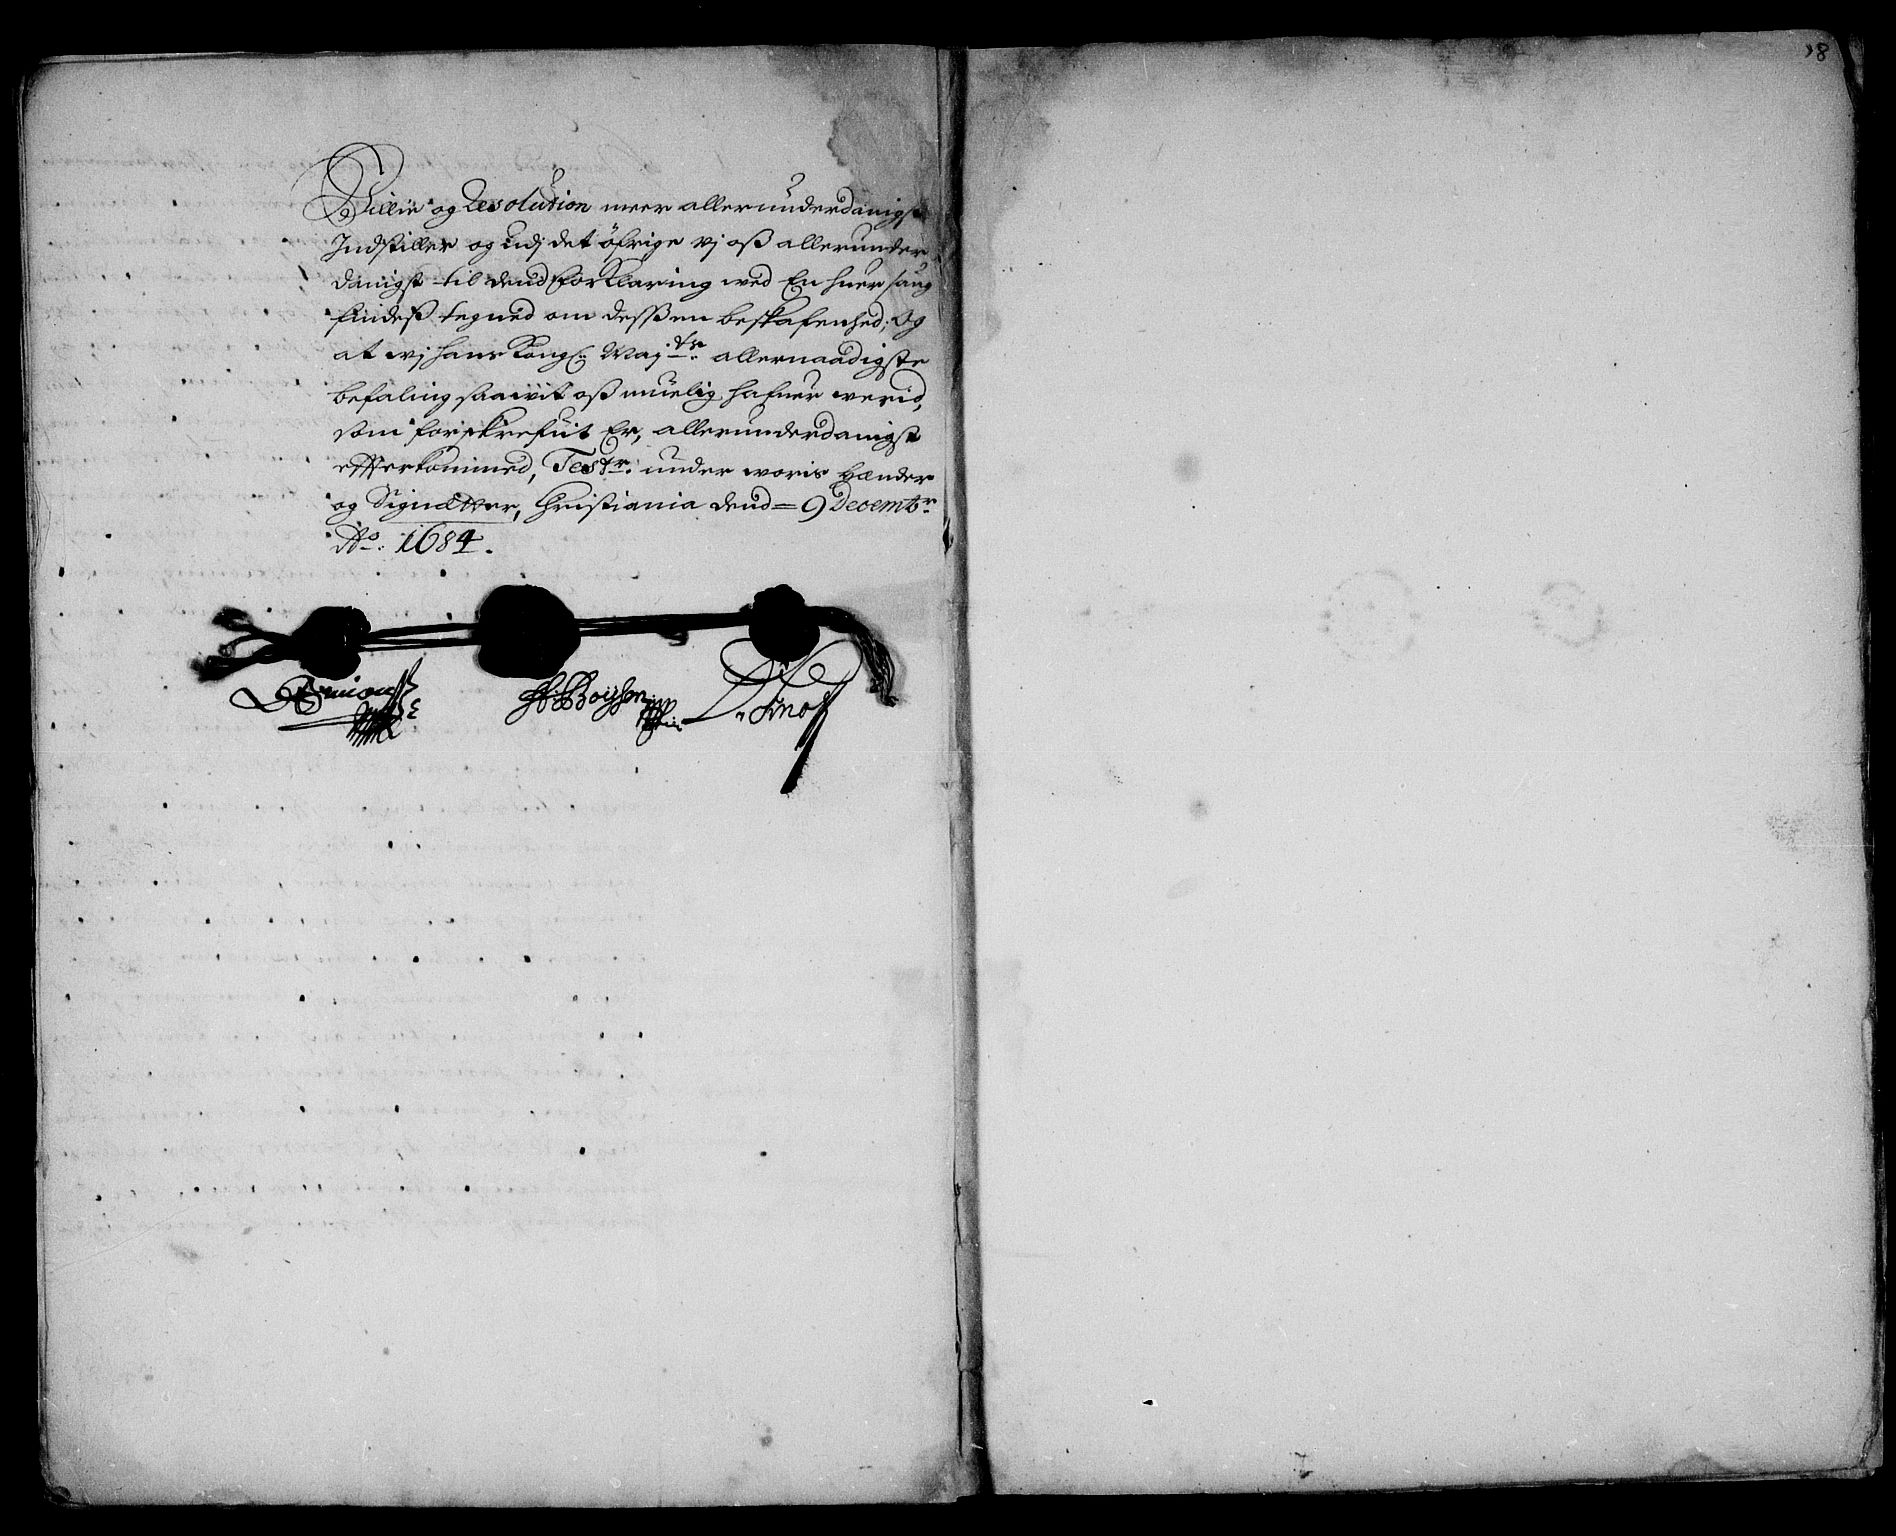 18
Villie og Resolution meer allerunderdanigst
Indstiller og udj det öfrige vj oß allerunder
danigst til dend forklaring ved En huer saug
findeß tegned om desßen beskafenhed; og
at vj hans Kongl: Maj:ts allernaadigste
befaling saawit oß muelig hafuer verid,
som forskrefuit Er, allerunderdanigst
efterkommed, Test:r under woris Hænder
og Signetter, Christiania dend = 9 Decemb:r
Ao: 1684.
H Boysen